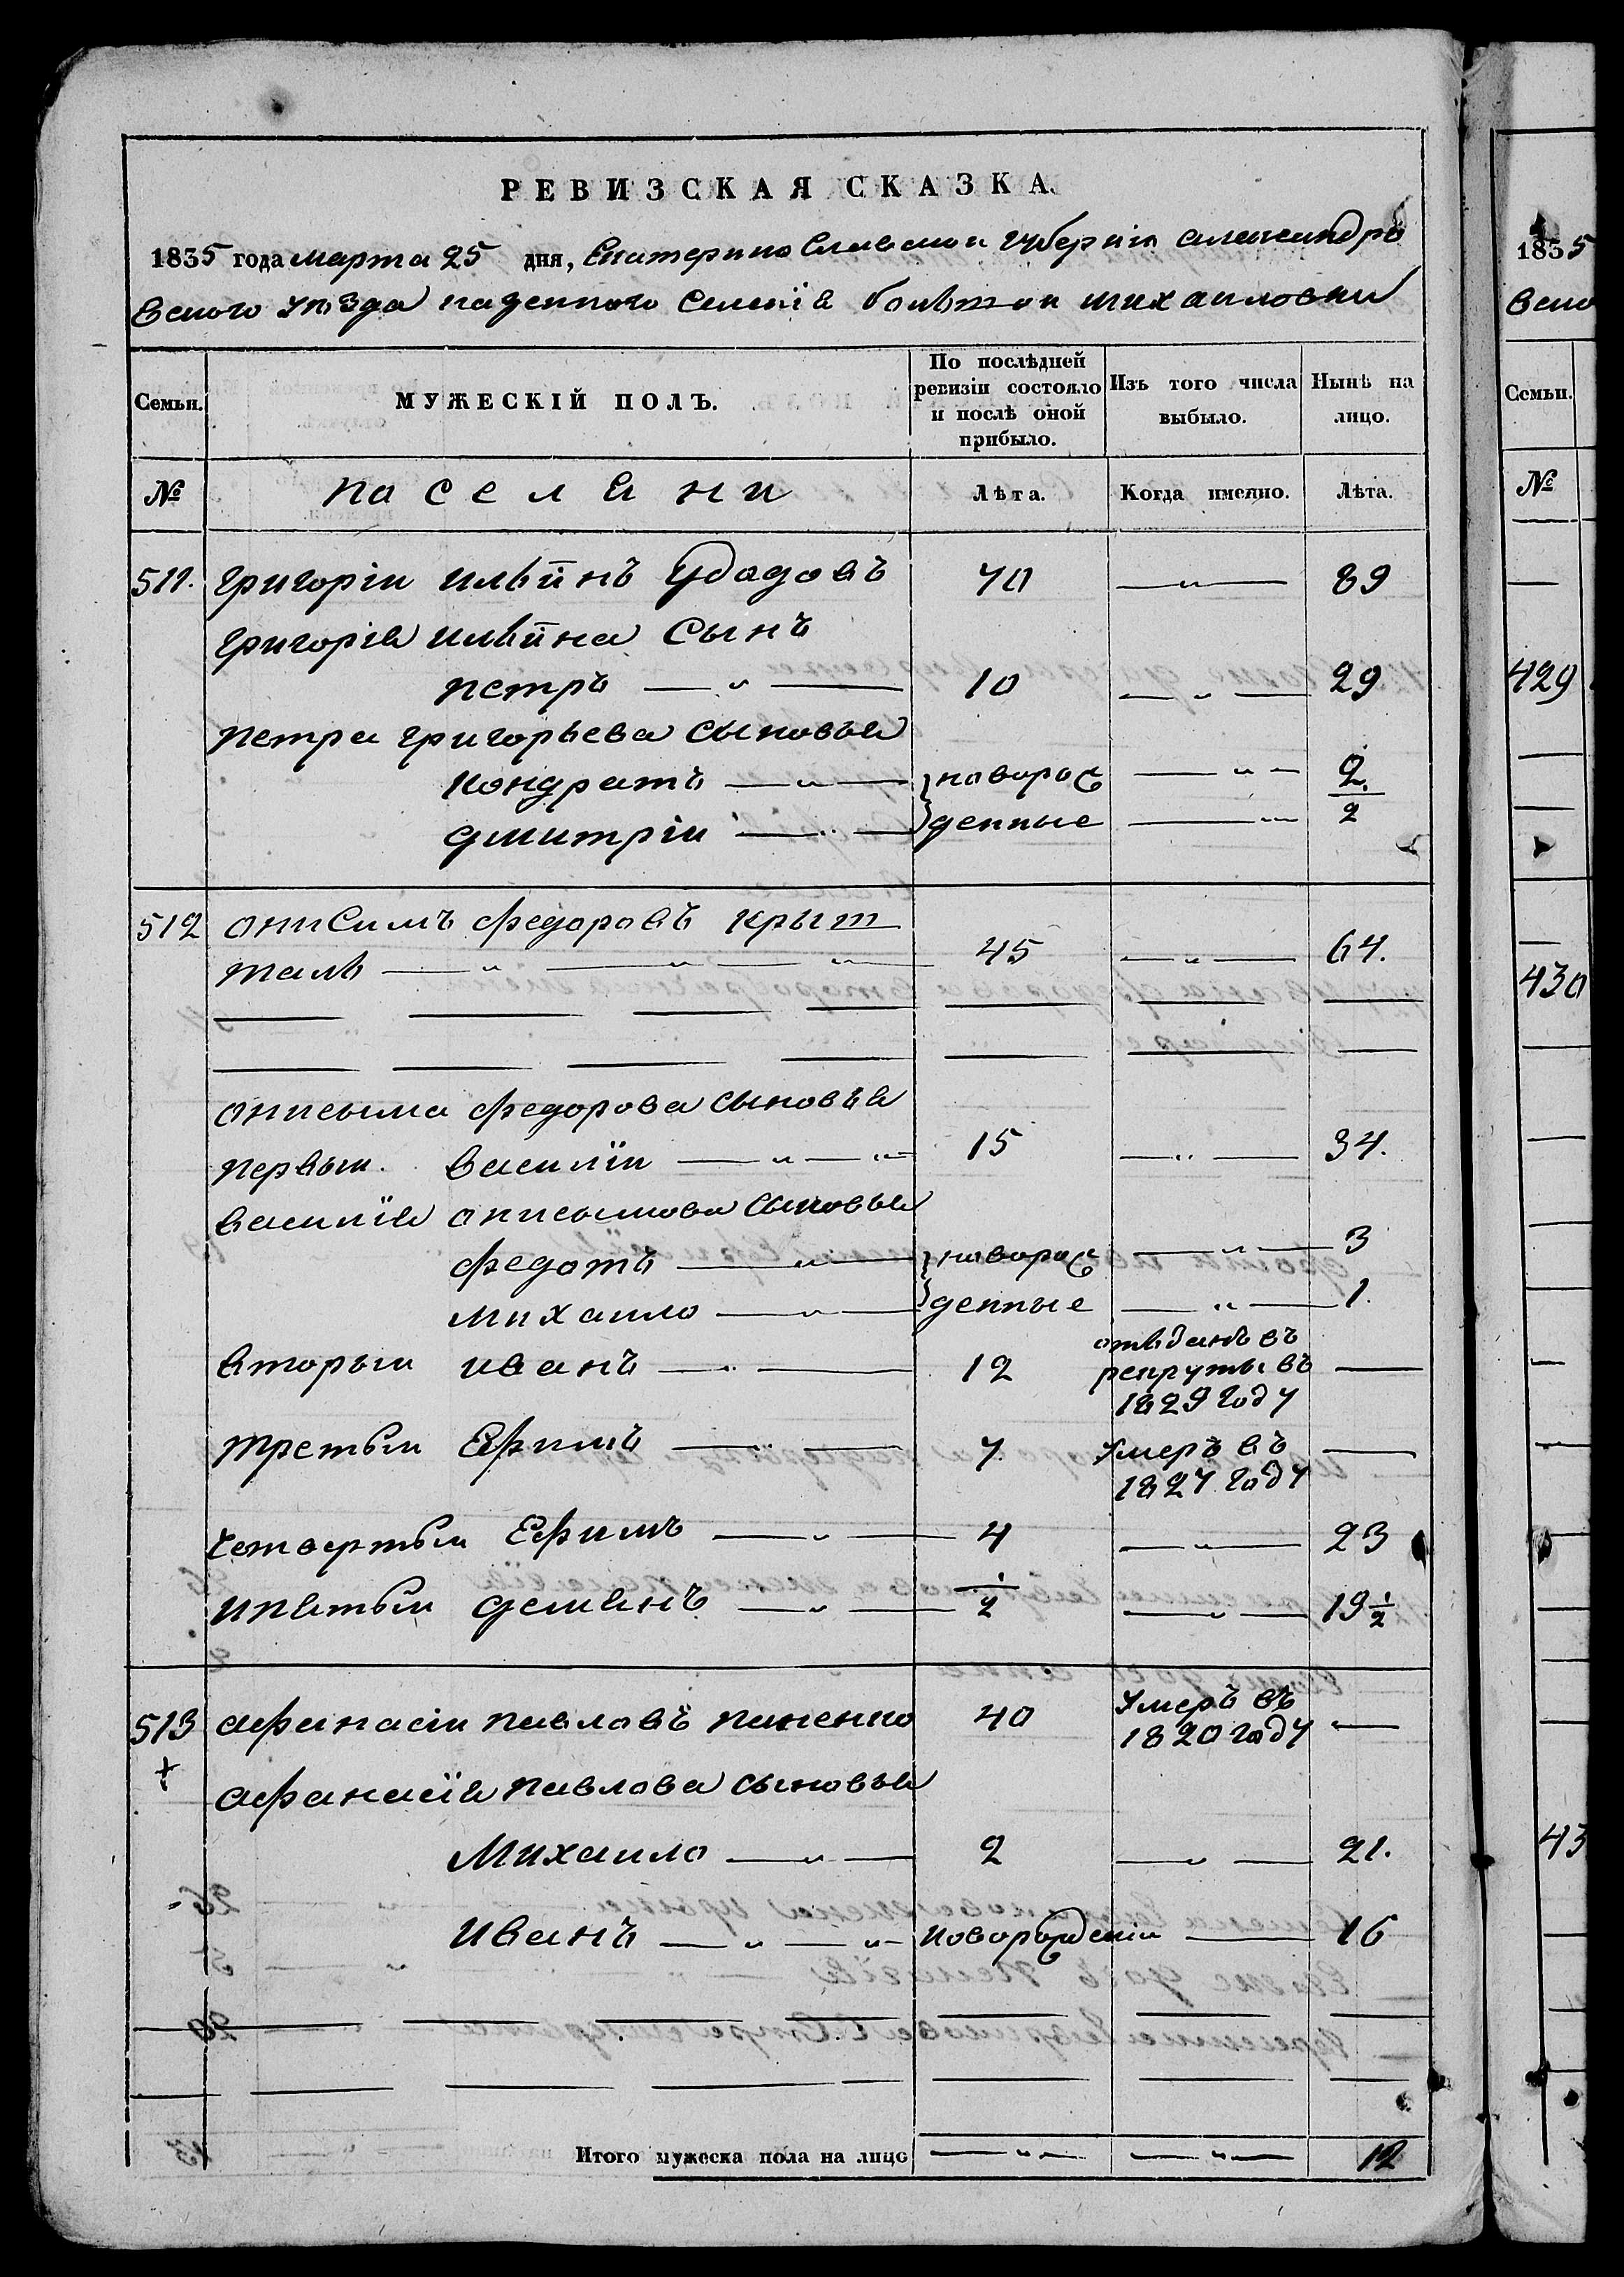 РЕВИЗСКАЯ СКАЗКА.
1835 года марта 25 дня, Екатерино Славской губерніи александро
вского уѣзда казенного селенія болшой михаиловки
Семьи.
МУЖЕСКІЙ ПОЛЪ.
По послѣдней ревизіи состояло и послѣ оной прибыло.
Изъ того числа выбыло.
Нынѣ на лицо.
№ поселяни Лѣта. Когда именно. Лѣта.
511. григоріи ильинъ Удодовъ 70 — " — 89
григорія ильина Сынъ
петръ — " — 10 — " — 29
петра григорьева сыновья
кондратъ — " — новорож — " — 2.
дмитріи — " — денные — " — 2
512 онисимъ федоровъ крыш
таль — " — " — " — 45 — " — 64.
онисима федорова сыновья
первыи василіи — " — " — 15 — " — 34.
василія онисимова сыновья
федотъ — " — новорож — " — 3
михаило — " — денные — " — 1.
вторыи иванъ — " — 12 отъданъ въ рекруты въ 1829 году —
третыи Ефимъ — " — 7 умеръ въ 1827 году —
четвертыи Ефимъ — " — 4 — " — 23
ипятыи демянъ — " — 1/2 — " — 19 1/2
513 афанасіи павловъ 40 умеръ въ 1820 году —
+
афанасія павлова сыновья
Михаило — " — 2 — " — 21.
иванъ — " — " — новорожденіи — 16
Итого мужеска пола на лицо — " — — " — 12
1835
вско
Семьи.
№
429
430
43